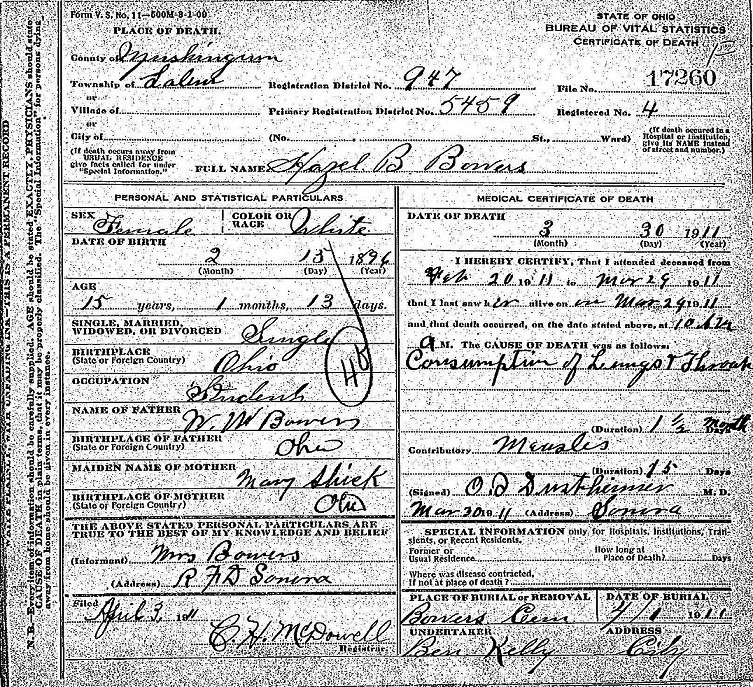 Form V. S. No. 11—600M-8-1-09
STATE OF OHIO
BUREAU OF VITAL STATISTICS
CERTIFICATE OF DEATH
PLACE OF DEATH.
County of Muskingum
Township of Salem
Registration District No. 947
File No. 17260
or
Village of
Primary Registration District No. 5459
Registered No. 4
or
City of
(No. , St., Ward)
(If death occurred in a Hospital or Institution, give its NAME instead of street and number.)
(If death occurs away from USUAL RESIDENCE give facts called for under "Special Information.")
FULL NAME Hazel B Bowers
PERSONAL AND STATISTICAL PARTICULARS
SEX Female
COLOR OR RACE White
DATE OF BIRTH
2 15 1896
(Month) (Day) (Year)
AGE
15 years, 1 months, 13 days.
SINGLE, MARRIED, WIDOWED, OR DIVORCED Single
BIRTHPLACE
(State or Foreign Country) Ohio
OCCUPATION Student
NAME OF FATHER W. M Bowers
BIRTHPLACE OF FATHER
(State or Foreign Country) Ohio
MAIDEN NAME OF MOTHER Mary Shick
BIRTHPLACE OF MOTHER
(State or Foreign Country) Ohio
THE ABOVE STATED PERSONAL PARTICULARS ARE
TRUE TO THE BEST OF MY KNOWLEDGE AND BELIEF
(Informant) Mrs Bowers
(Address) R F D Sonora
Filed April 3, 1911
C. H. McDowell
Registrar.
MEDICAL CERTIFICATE OF DEATH
DATE OF DEATH
3 30 1911
(Month) (Day) (Year)
I HEREBY CERTIFY, That I attended deceased from
Feb 20 1911 to Mar 29 1911
that I last saw her alive on Mar 29 1911
and that death occurred, on the date stated above, at
A.M. The CAUSE OF DEATH was as follows:
Consumption of Lungs & Throat
(Duration) 1 1/2 Month Days
Contributory Measles
(Duration) 15 Days
(Signed) O B Dustheimer M. D.
1911 (Address) Sonora
SPECIAL INFORMATION only for Hospitals, Institutions, Transients, or Recent Residents.
Former or Usual Residence
How long at Place of Death? Days
Where was disease contracted, If not at place of death?
PLACE OF BURIAL OR REMOVAL
Bowers Cem
DATE OF BURIAL
4/1 1911
UNDERTAKER
Ben Kelly
ADDRESS
City
N. B.—Every item of information should be carefully supplied. AGE should be stated EXACTLY. PHYSICIANS should state
CAUSE OF DEATH in plain terms, that it may be properly classified. The "Special Information" for persons dying
away from home should be given in every instance.
WRITE PLAINLY, WITH UNFADING INK—THIS IS A PERMANENT RECORD